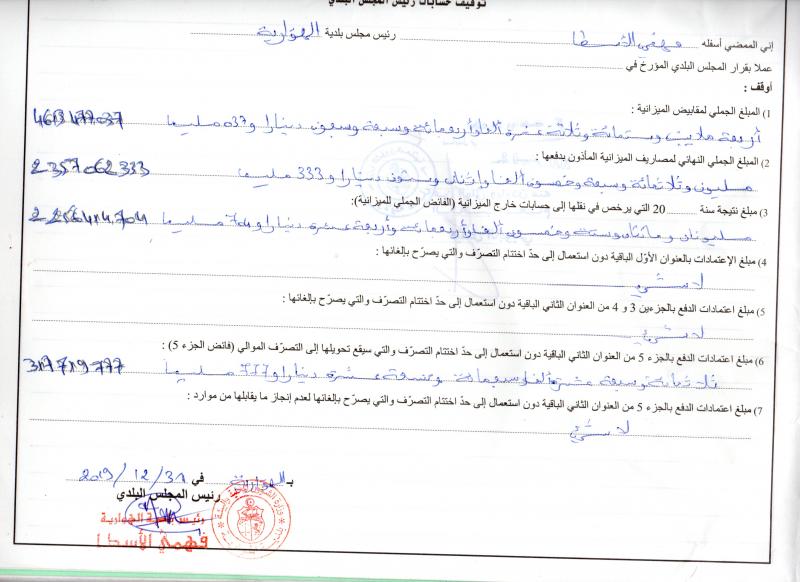 توقيف حسابات رئيس المجلس البلدي
إني الممضي أسفله فهمي الأسطا رئيس مجلس بلدية الهوارية
عملا بقرار المجلس البلدي المؤرخ في
أوقف :
1) المبلغ الجملي لمقابيض الميزانية :
أربعة ملايين وستمائة وثلاثة عشرة ألفا وأربعمائة وسبعة وسبعون دينارا و037 مليما 4613477.037
2) المبلغ الجملي النهائي لمصاريف الميزانية المأذون بدفعها :
مليونان وثلاثمائة وسبعة وخمسون ألفا واثنان وستون دينارا و333 مليما 2357062333
3) مبلغ نتيجة سنة 20 التي يرخص في نقلها إلى حسابات خارج الميزانية (الفائض الجملي للميزانية):
مليونان ومائتان وستة وخمسون ألفا وأربعمائة وأربعة عشرة دينارا و704 مليما 2256414.704
4) مبلغ الإعتمادات بالعنوان الأوّل الباقية دون استعمال إلى حدّ اختتام التصرّف والتي يصرّح بإلغائها :
لا شيء
5) مبلغ اعتمادات الدفع بالجزءين 3 و 4 من العنوان الثاني الباقية دون استعمال إلى حدّ اختتام التصرّف والتي يصرّح بإلغائها :
لا شيء
6) مبلغ اعتمادات الدفع بالجزء 5 من العنوان الثاني الباقية دون استعمال إلى حدّ اختتام التصرّف والتي سيقع تحويلها إلى التصرّف الموالي (فائض الجزء 5) :
ثلاثمائة وسبعة عشرة ألفا وسبعمائة وتسعة عشرة دينارا و777 مليما 317719.777
7) مبلغ اعتمادات الدفع بالجزء 5 من العنوان الثاني الباقية دون استعمال إلى حدّ اختتام التصرّف والتي يصرّح بإلغائها لعدم إنجاز ما يقابلها من موارد :
لا شيء
بـ الهوارية في 2019/12/31
رئيس المجلس البلدي
رئيس بلدية الهوارية
فهمي الأسطا